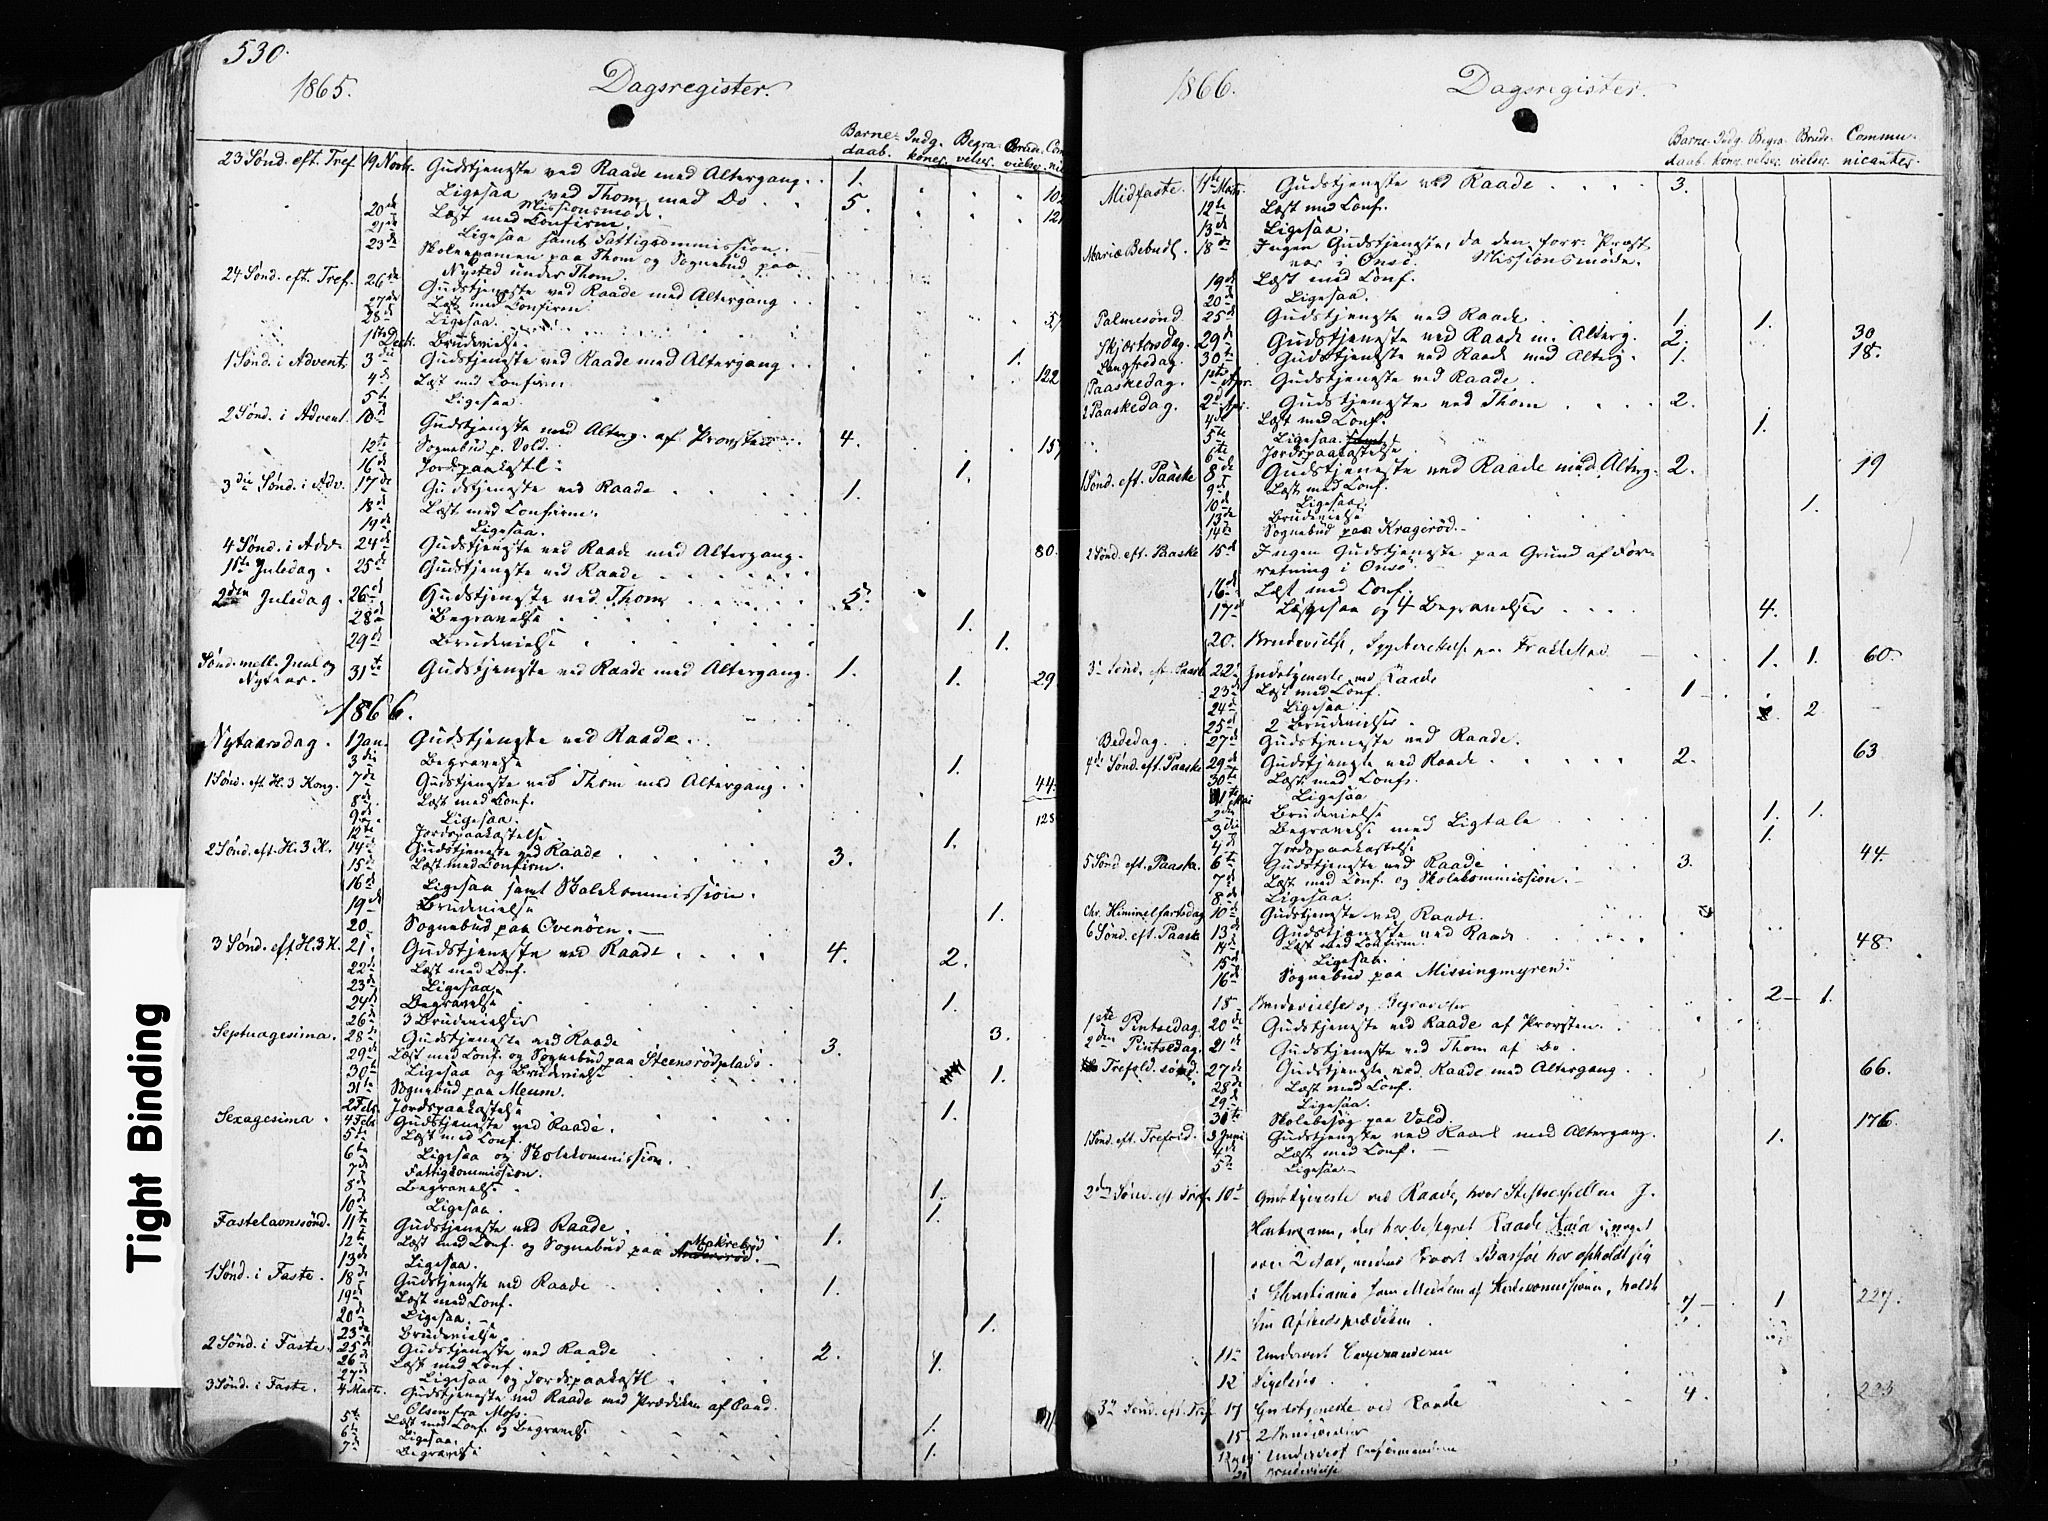 530.
1865. Dagsregister.
Barne- Indg. Begra- Brud- Com
daab. koner. velser. vielser. ni
23 Sønd. eft. Tref. 19 Novb. Gudstjeneste ved Raade med Altergang. 1.
Ligesaa ved Thom med Do 5.
20de Læst med Confirm. Missionsmøde.
21de Ligesaa samt Fattigcommission.
23de Skoleexamen paa Thom og Sognebud paa
Nysted under Thom.
24 Sønd. eft. Tref. 26de Gudstjeneste ved Raade med Altergang
27de Læst med Confirm.
28de Ligesaa.
1ste Decb. Brudevielse. 1.
1 Sønd. i Advent 3die Gudstjeneste ved Raade med Altergang 122
4de Læst med Confirm.
5te Ligesaa.
2 Sønd. i Advent 10de Gudstjeneste med Alterg. af Provsten 4. 157
12te Sognebud p. Vold.
16de Jordspaakastl. 1.
3die Sønd. i Adv. 17de Gudstjeneste ved Raade 1.
18de Læst med Confirm.
19de Ligesaa.
4 Sønd. i Adv. 24de Gudstjeneste ved Raade med Altergang. 80.
1ste Juledag. 25de Gudstjeneste ved Raade
2den Juledag. 26de Gudstjeneste ved Thom 5.
28de Begravelse 1.
29de Brudevielse 1.
Sønd. mell. Juul og
Nytaar. 31te Gudstjeneste ved Raade med Altergang 1. 1. 29
1866.
Nytaarsdag. 1 Jan. Gudstjeneste ved Raade.
3die Begravelse 1.
1 Sønd. eft. H. 3 Kong. 7de Gudstjeneste ved Thom med Altergang 44
8de Læst med Conf.
9de Ligesaa.
12te Jordspaakastelse 1.
2 Sønd. eft. H. 3 K. 14de Gudstjeneste ved Raade 3.
15de Læst med Confirm.
16de Ligesaa samt Skolekommission.
19de Brudevielse 1.
20 Sognebud paa Ovenöen.
3 Sønd. eft. H. 3 K. 21. Gudstjeneste ved Raade 4. 2.
22de Læst med Conf.
23de Ligesaa.
24de Begravelse 1.
26de 3 Brudevielser 3.
Septuagesima. 28de Gudstjeneste ved Raade 3.
29de Læst med Conf. og Sognebud paa Steensrødplads.
30te Ligesaa og Brudevielse 1.
31te Sognebud paa Meum.
2 Feb. Jordspaakastelse 1.
Sexagesima. 4 Feb. Gudstjeneste ved Raade.
5te Læst med Conf.
6te Ligesaa og Skolekommission.
7de Fattigkommission.
8de Begravelse 1.
10de Ligesaa. 1.
Fastelavnssønd. 11te Gudstjeneste ved Raade 1.
12te Læst med Conf. og Sognebud paa Makrebød
13de Ligesaa.
1 Sønd. i Faste. 18de Gudstjeneste ved Raade 1.
19de Læst med Conf.
20de Ligesaa.
23de Brudevielse. 1.
2 Sønd. i Faste. 25de Gudstjeneste ved Raade 2.
26de Læst med Conf. 1.
27de Ligesaa og Jordspaakastl.
3 Sønd. i Faste. 4 Marts. Gudstjeneste ved Raade med Prædiken af Cand.
Olsen fra Moss.
5te Læst med Conf. og Begravelse 1.
6te Ligesaa.
7de Begravelse 1.
1866. Dagsregister.
Barne- Indg. Begra- Brude- Commu-
daab. kone. velser. vielser. nicanter.
Midfaste. Marts Gudstjeneste ved Raade 3.
12te Læst med Conf.
13de Ligesaa.
Mariæ Bebudl. 18de Ingen Gudstjeneste, da den forr. Præst
var i Onsø. Missionsmøde.
19de Læst med Conf.
20de Ligesaa.
Palmesønd. 25de Gudstjeneste ved Raade 1. 1.
Skjærtorsdag. 29de Gudstjeneste ved Raade m. Alterg. 2. 30
Langfredag. 30te Gudstjeneste ved Raade med Alterg. 1. 18.
Paaskedag. 1ste Apr. Gudstjeneste ved Raade.
2 Paaskedag. 2d Apr. Gudstjeneste ved Thom 2.
4de Læst med Conf.
5te Ligesaa. 1.
6te Jordspaakastelse
1 Sønd. eft. Paaske 8de Gudstjeneste ved Raade med Alterg. 2. 19
9de Læst med Conf.
10de Ligesaa.
13de Brudevielse 1.
14de Sognebud paa Kragerød.
2 Sønd. eft. Paaske 15de Ingen Gudstjeneste paa Grund af For-
retning i Onsö.
16de Læst med Conf.
17de Ligesaa og 4 Begravelser 4.
20. Brudevielse, 1. 1. 60.
3de Sønd. eft. Paaske 22. Gudstjeneste ved Raade
23de Læst med Conf. 1
24de Ligesaa.
25de 2 Brudevielser. 2
Bededag. 27de Gudstjeneste ved Raade.
4de Sønd. eft. Paaske 29de Gudstjeneste ved Raade 2. 63
30te Læst med Conf.
1ste Mai Ligesaa
2den Brudevielse 1. 1.
3die Begravelse med Ligtale 1.
4de Jordspaakastelse
5 Sønd. eft. Paaske. 6te Gudstjeneste ved Raade 3. 44.
7de Læst med Conf. og Skolekommission.
8de Ligesaa.
Chr. Himmelfartsdag 10de Gudstjeneste ved Raade.
6 Sønd. eft. Paaske 13de Gudstjeneste ved Raade 48.
14de Læst med Confirm.
15de Ligesaa.
16de Sognebud paa Missingmyren.
18 Brudevielse og Begravelser 2 1.
1ste Pintsedag. 20de Gudstjeneste ved Raade af Provsten.
2den Pintsedag. 21de Gudstjeneste ved Thom af Do.
Trefold. sønd. 27de Gudstjeneste ved Raade med Altergang 66.
28de Læst med Conf.
29de Ligesaa.
30te Skolebesøg paa Vold. 176
1 Sønd. eft. Trefold. 3 Juni Gudstjeneste ved Raade med Altergang. 1.
4de Læst med Conf.
5te Ligesaa.
2den Sønd. eft. Tref. 10de Gudstjeneste ved Raade, hvor J.
der har Raade Kald i noget
over 2 Aar, medens Provst har opholdt sig
i Christiania som Medlem af Kirkekommissionen, holdt
sin Afskedsprædiken. 7 1 227.
11 Underviist Confirmanderne
12 Ligeledes
3de Sønd. eft. Tref. 17 Gudstjeneste ved Raade 4.
15. 2 Brudevielser
Underviist Confirmanderne
Brudevielse
Tight Binding